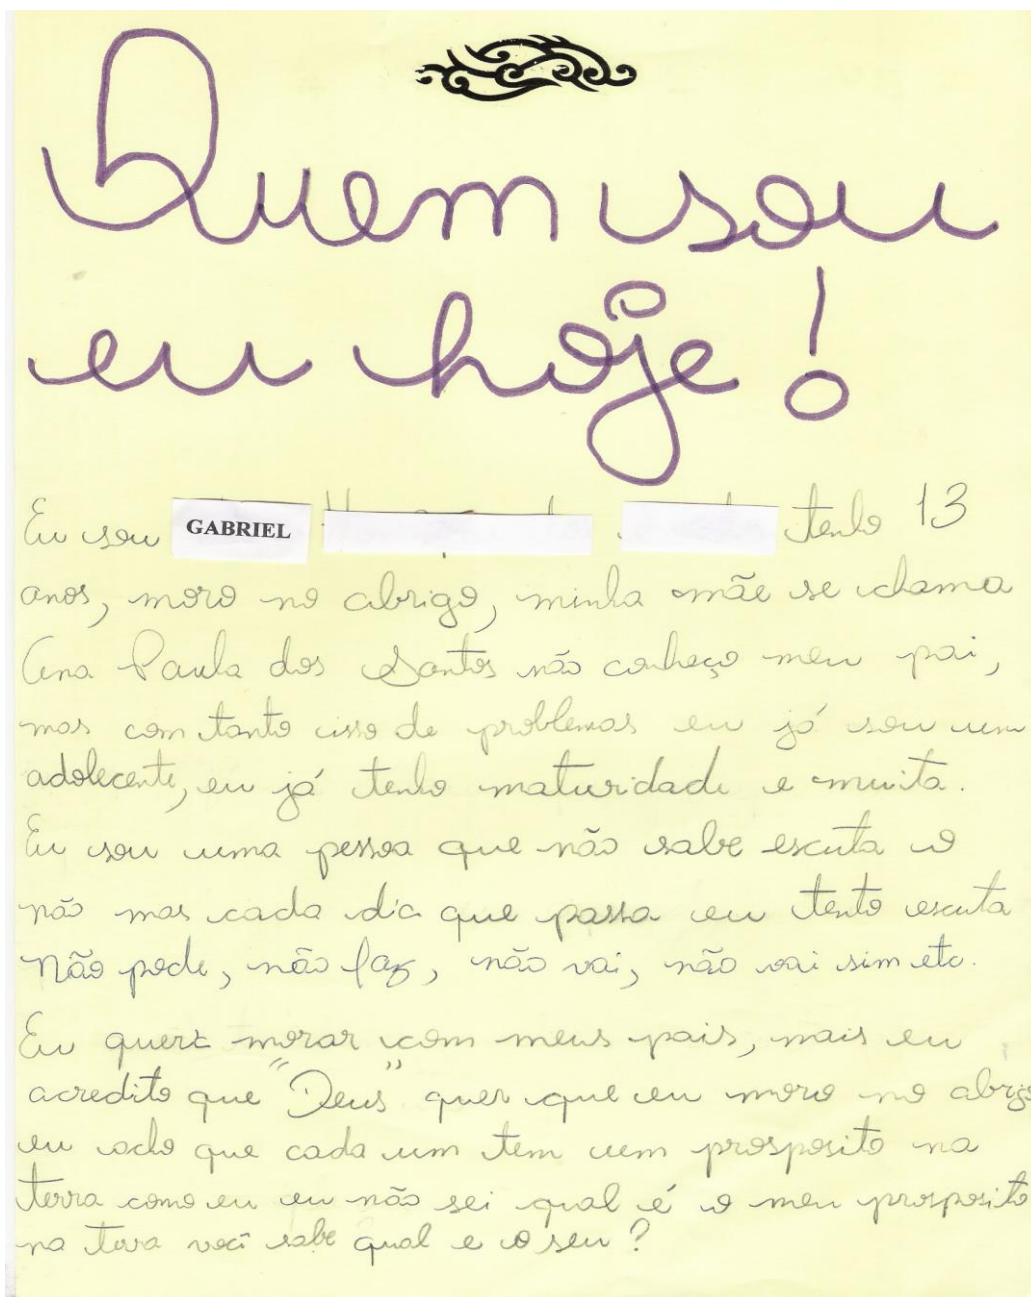 Quem sou
eu hoje!
Eu sou GABRIEL tenho 13
anos, moro no abrigo, minha mãe se chama
Ana Paula dos Santos não conheço meu pai,
mas com tanto isso de problemas eu já sou um
adolecente, eu já tenho maturidade e muita.
Eu sou uma pessoa que não sabe escuta o
não mas cada dia que passa eu tento escuta
Não pode, não faz, não vai, não vai sim etc.
Eu quero morar com meus pais, mais eu
acredito que "Deus" quer que eu moro no abrigo
eu acho que cada um tem um prosposito na
terra como eu eu não sei qual é o meu prosposito
na terra você sabe qual e o seu?